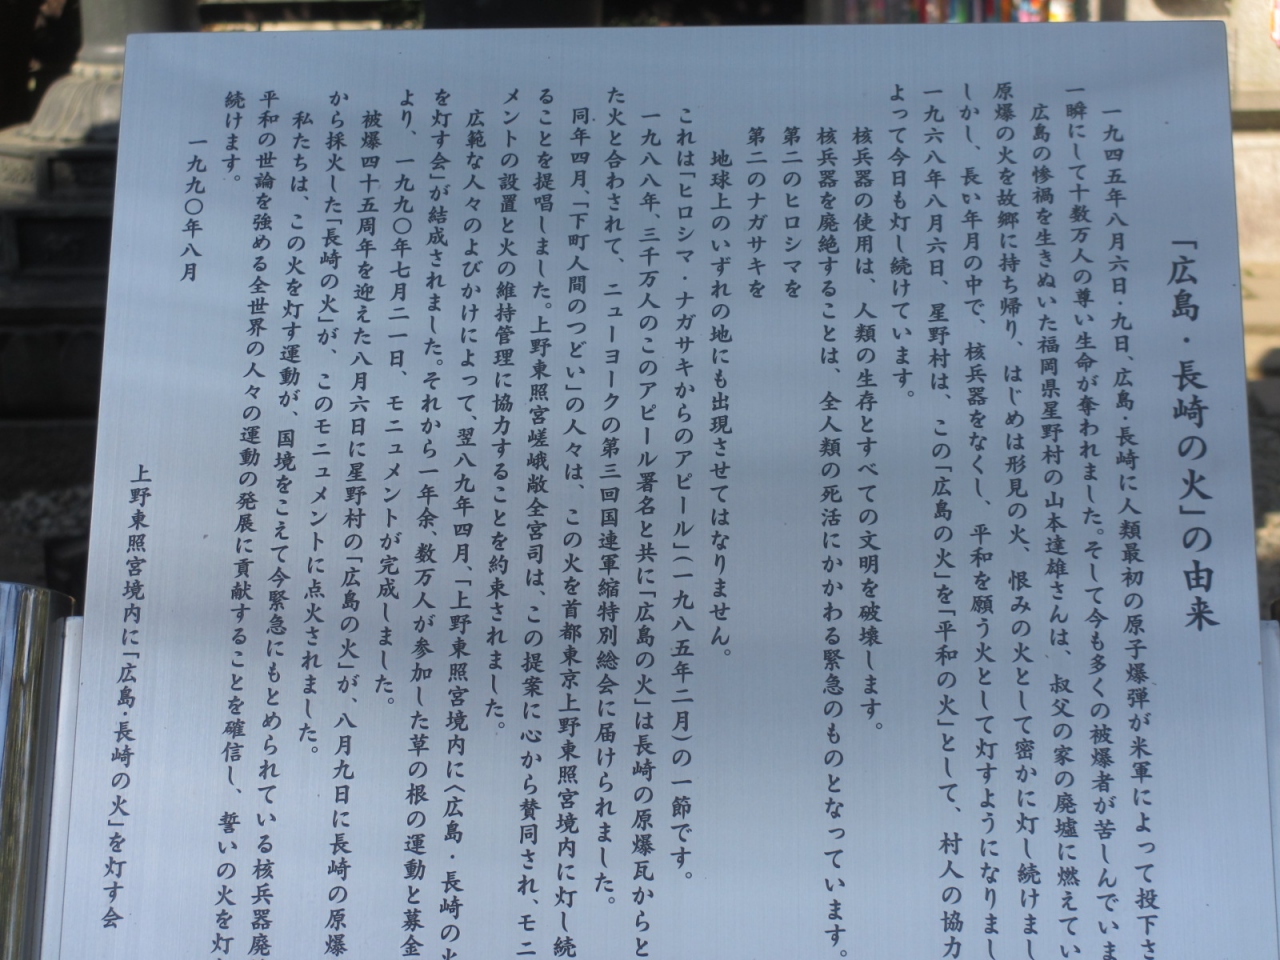 「広島・長崎の火」の由来
一九四五年八月六日・九日、広島・長崎に人類最初の原子爆弾が米軍によって投下さ
一瞬にして十数万人の尊い生命が奪われました。そして今も多くの被爆者が苦しんでいま
広島の惨禍を生きぬいた福岡県星野村の山本達雄さんは、叔父の家の廃墟に燃えてい
原爆の火を故郷に持ち帰り、はじめは形見の火、恨みの火として密かに灯し続けまし
しかし、長い年月の中で、核兵器をなくし、平和を願う火として灯すようになりまし
一九六八年八月六日、星野村は、この「広島の火」を「平和の火」として、村人の協力
よって今日も灯し続けています。
核兵器の使用は、人類の生存とすべての文明を破壊します。
核兵器を廃絶することは、全人類の死活にかかわる緊急のものとなっています。
第二のヒロシマを
第二のナガサキを
地球上のいずれの地にも出現させてはなりません。
これは「ヒロシマ・ナガサキからのアピール」(一九八五年二月)の一節です。
一九八八年、三千万人のこのアピール署名と共に「広島の火」は長崎の原爆瓦からと
た火と合わされて、ニューヨークの第三回国連軍縮特別総会に届けられました。
同年四月、「下町人間のつどい」の人々は、この火を首都東京上野東照宮境内に灯し続
ることを提唱しました。上野東照宮嵯峨敞全宮司は、この提案に心から賛同され、モニ
メントの設置と火の維持管理に協力することを約束されました。
広範な人々のよびかけによって、翌八九年四月、「上野東照宮境内に〈広島・長崎の火
を灯す会」が結成されました。それから一年余、数万人が参加した草の根の運動と募金
より、一九九〇年七月二一日、モニュメントが完成しました。
被爆四十五周年を迎えた八月六日に星野村の「広島の火」が、八月九日に長崎の原爆
から採火した「長崎の火」が、このモニュメントに点火されました。
私たちは、この火を灯す運動が、国境をこえて今緊急にもとめられている核兵器廃
平和の世論を強める全世界の人々の運動の発展に貢献することを確信し、誓いの火を灯
続けます。
一九九〇年八月
上野東照宮境内に「広島・長崎の火」を灯す会